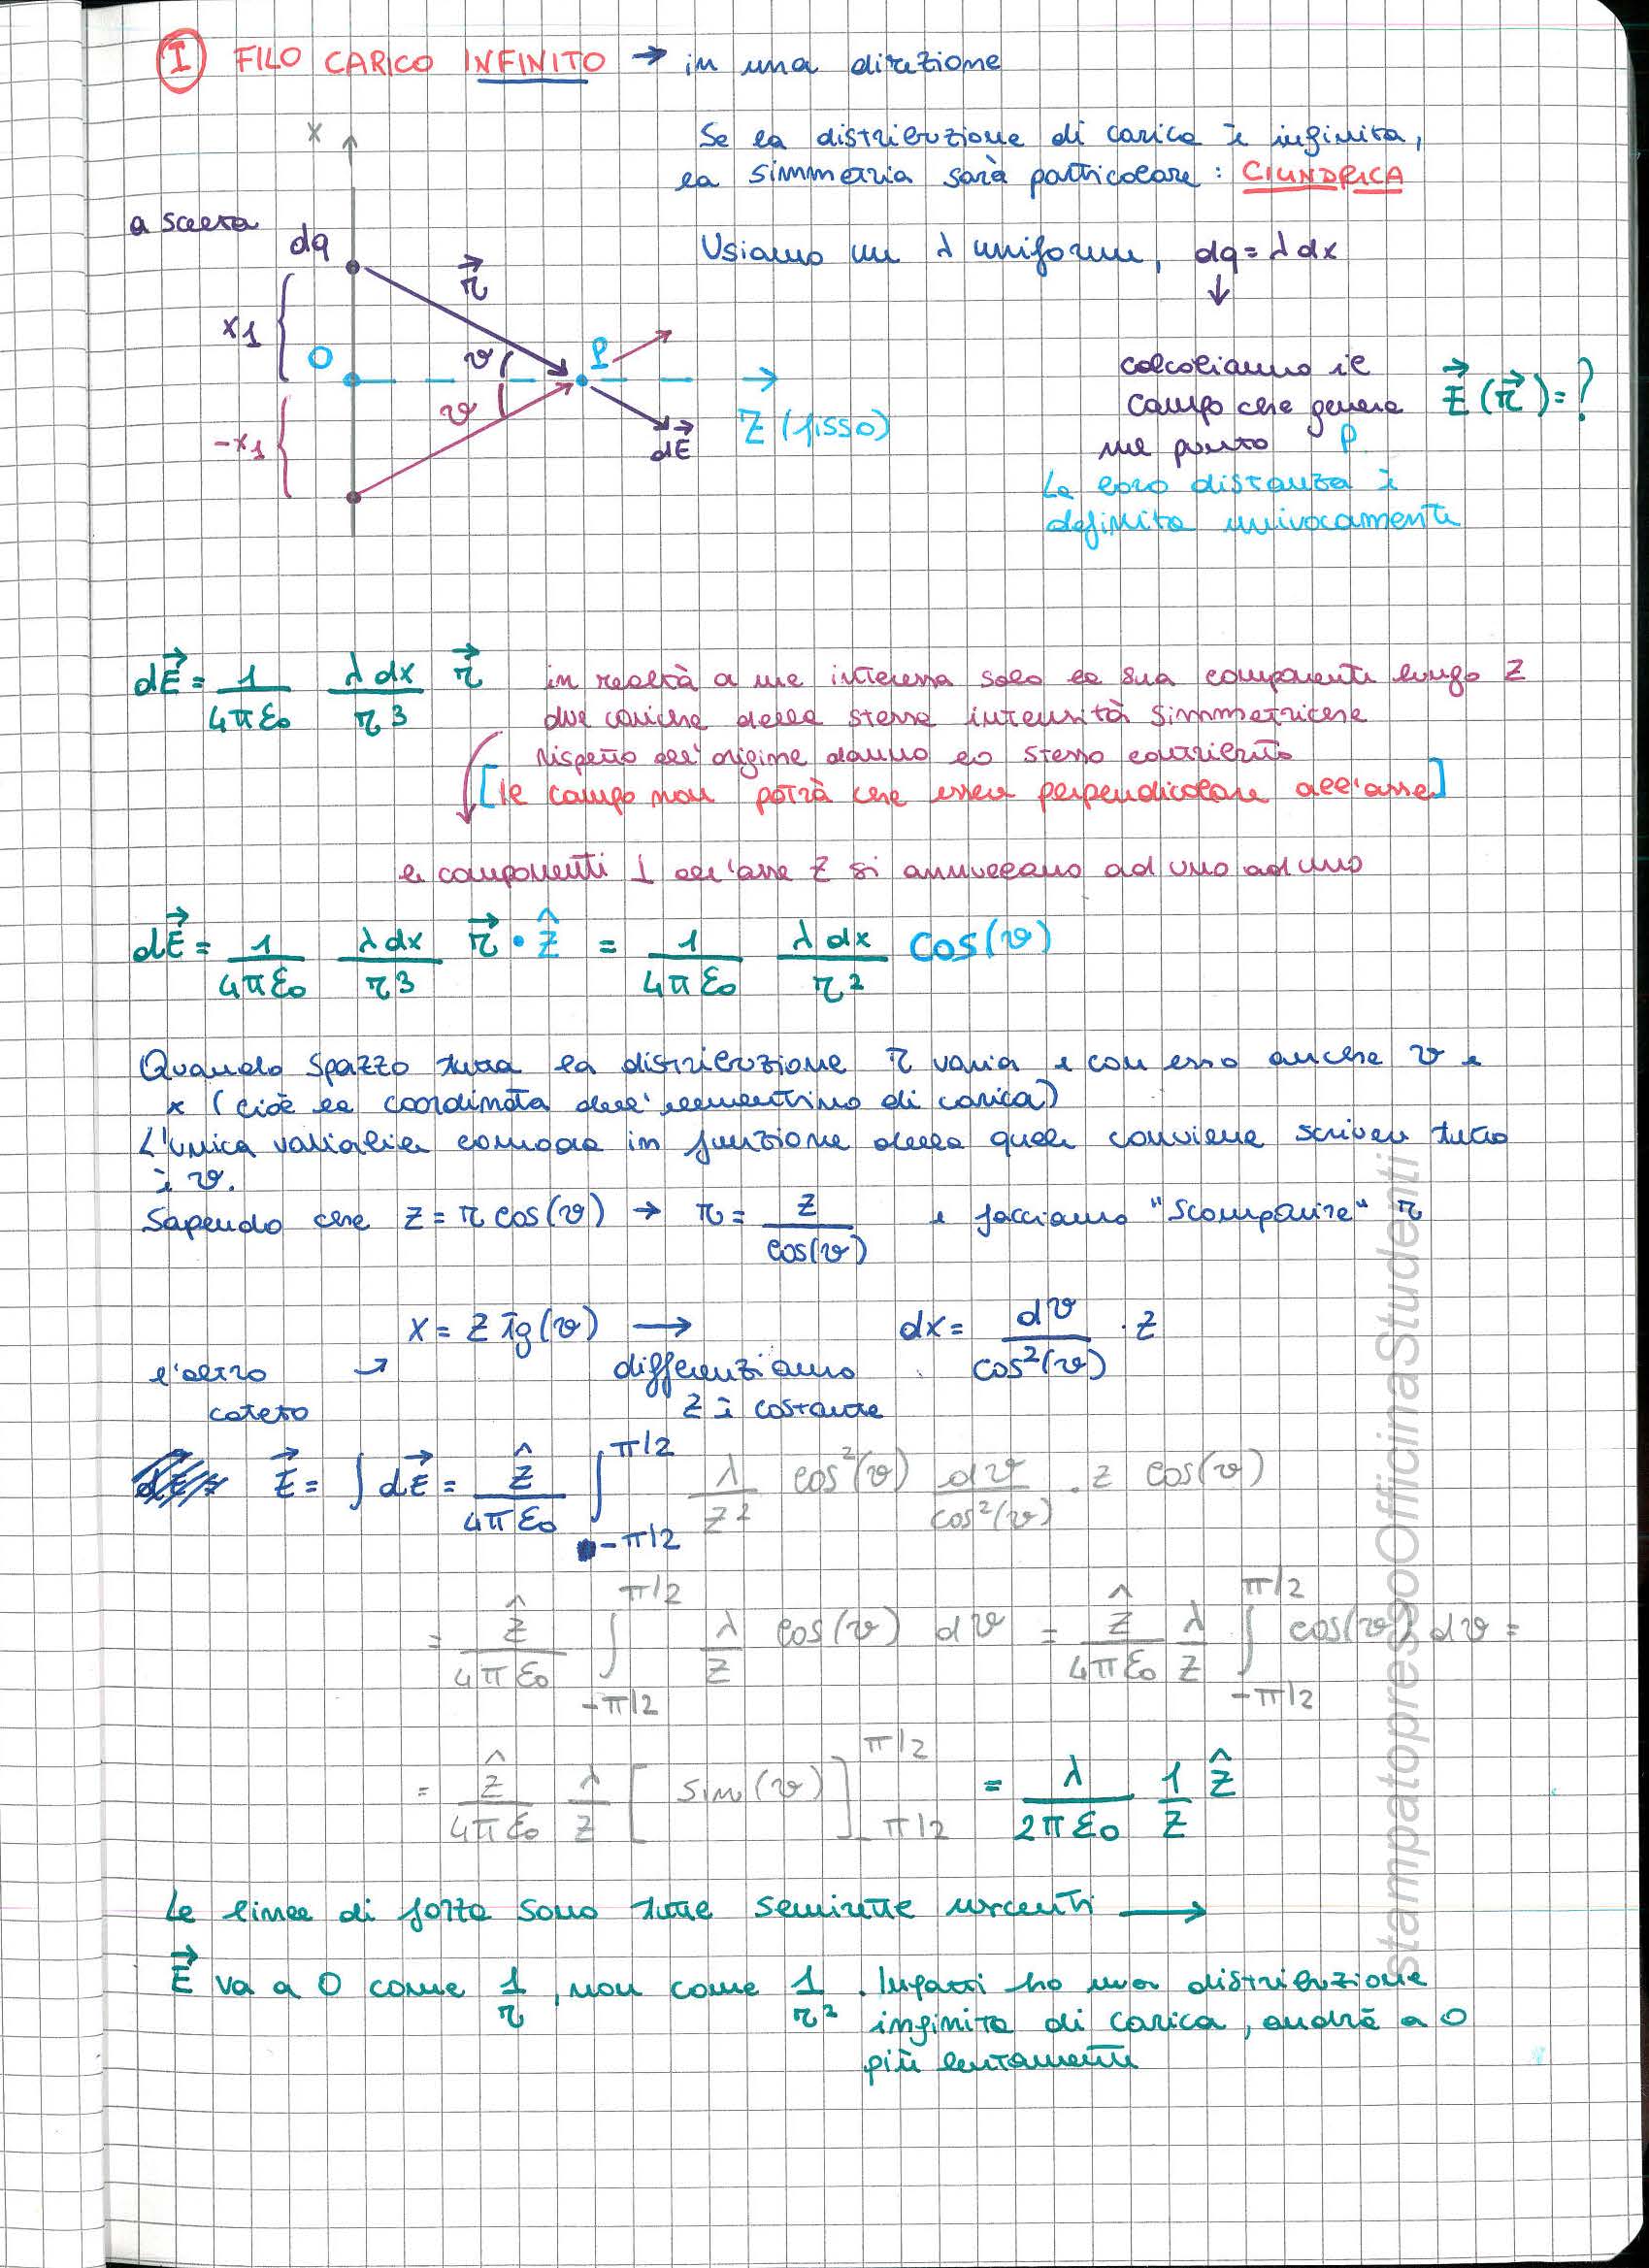 I FILO CARICO INFINITO → in una direzione
x
Se la distribuzione di carica è infinita,
la simmetria sarà particolare: CILINDRICA
a scelta
dq
Usiamo un λ uniforme, dq = λ dx
↓
r⃗
x1
O
ϑ
P
calcoliamo il
campo che genera E⃗(r⃗) = ?
nel punto P
ϑ
-x1
z (fisso)
dE⃗
La loro distanza è
definita univocamente
dE⃗ = 1/(4πε0) λdx/r³ r⃗ in realtà a me interessa solo la sua componente lungo z
due cariche della stessa intensità simmetriche
rispetto all'origine danno lo stesso contributo
[Il campo non potrà che essere perpendicolare all'asse]
le componenti ⊥ all'asse z si annullano ad uno ad uno
dE⃗ = 1/(4πε0) λdx/r³ r⃗ · ẑ = 1/(4πε0) λdx/r² cos(ϑ)
Quando spazzo tutta la distribuzione r varia e con esso anche ϑ e
x (cioè la coordinata dell'elementino di carica)
L'unica variabile comoda in funzione della quale conviene scrivere tutto
è ϑ.
Sapendo che z = r cos(ϑ) → r = z/cos(ϑ) e facciamo "scomparire" r
x = z tg(ϑ) → dx = dϑ/cos²(ϑ) · z
l'altro → differenziamo
cateto z è costante
E⃗ = ∫ dE⃗ = ẑ/(4πε0) ∫_{-π/2}^{π/2} λ/z² cos²(ϑ) dϑ/cos²(ϑ) · z cos(ϑ)
= ẑ/(4πε0) ∫_{-π/2}^{π/2} λ/z cos(ϑ) dϑ = ẑ/(4πε0) λ/z ∫_{-π/2}^{π/2} cos(ϑ) dϑ =
= ẑ/(4πε0) λ/z [sin(ϑ)]_{-π/2}^{π/2} = λ/(2πε0) 1/z ẑ
Le linee di forza sono tutte semirette uscenti →
E⃗ va a 0 come 1/r, non come 1/r². Infatti ho una distribuzione
infinita di carica, andrà a 0
più lentamente
stampatopressoOfficinaStudenti